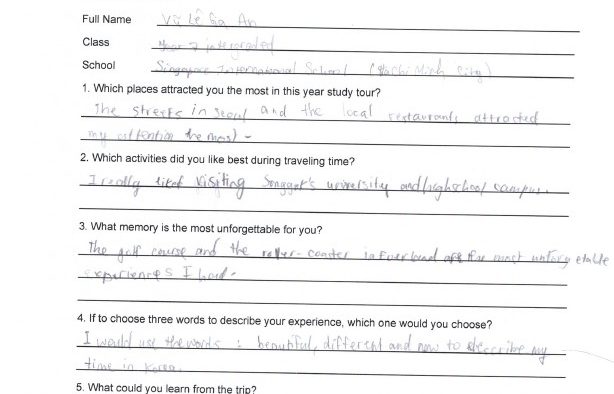 Full Name Vũ Lê Gia An
Class Year 7 intergraded
School Singapore International School (Ho Chi Minh City)
1. Which places attracted you the most in this year study tour?
The streets in seoul and the local restaurants attracted
my attention the most.
2. Which activities did you like best during traveling time?
I really liked visiting university and highschool campus.
3. What memory is the most unforgettable for you?
The golf course and the roller-coaster in Everland are the most unforgetable
experiences I had.
4. If to choose three words to describe your experience, which one would you choose?
I would use the words : beautiful, different and new to describe my
time in Korea.
5. What could you learn from the trip?